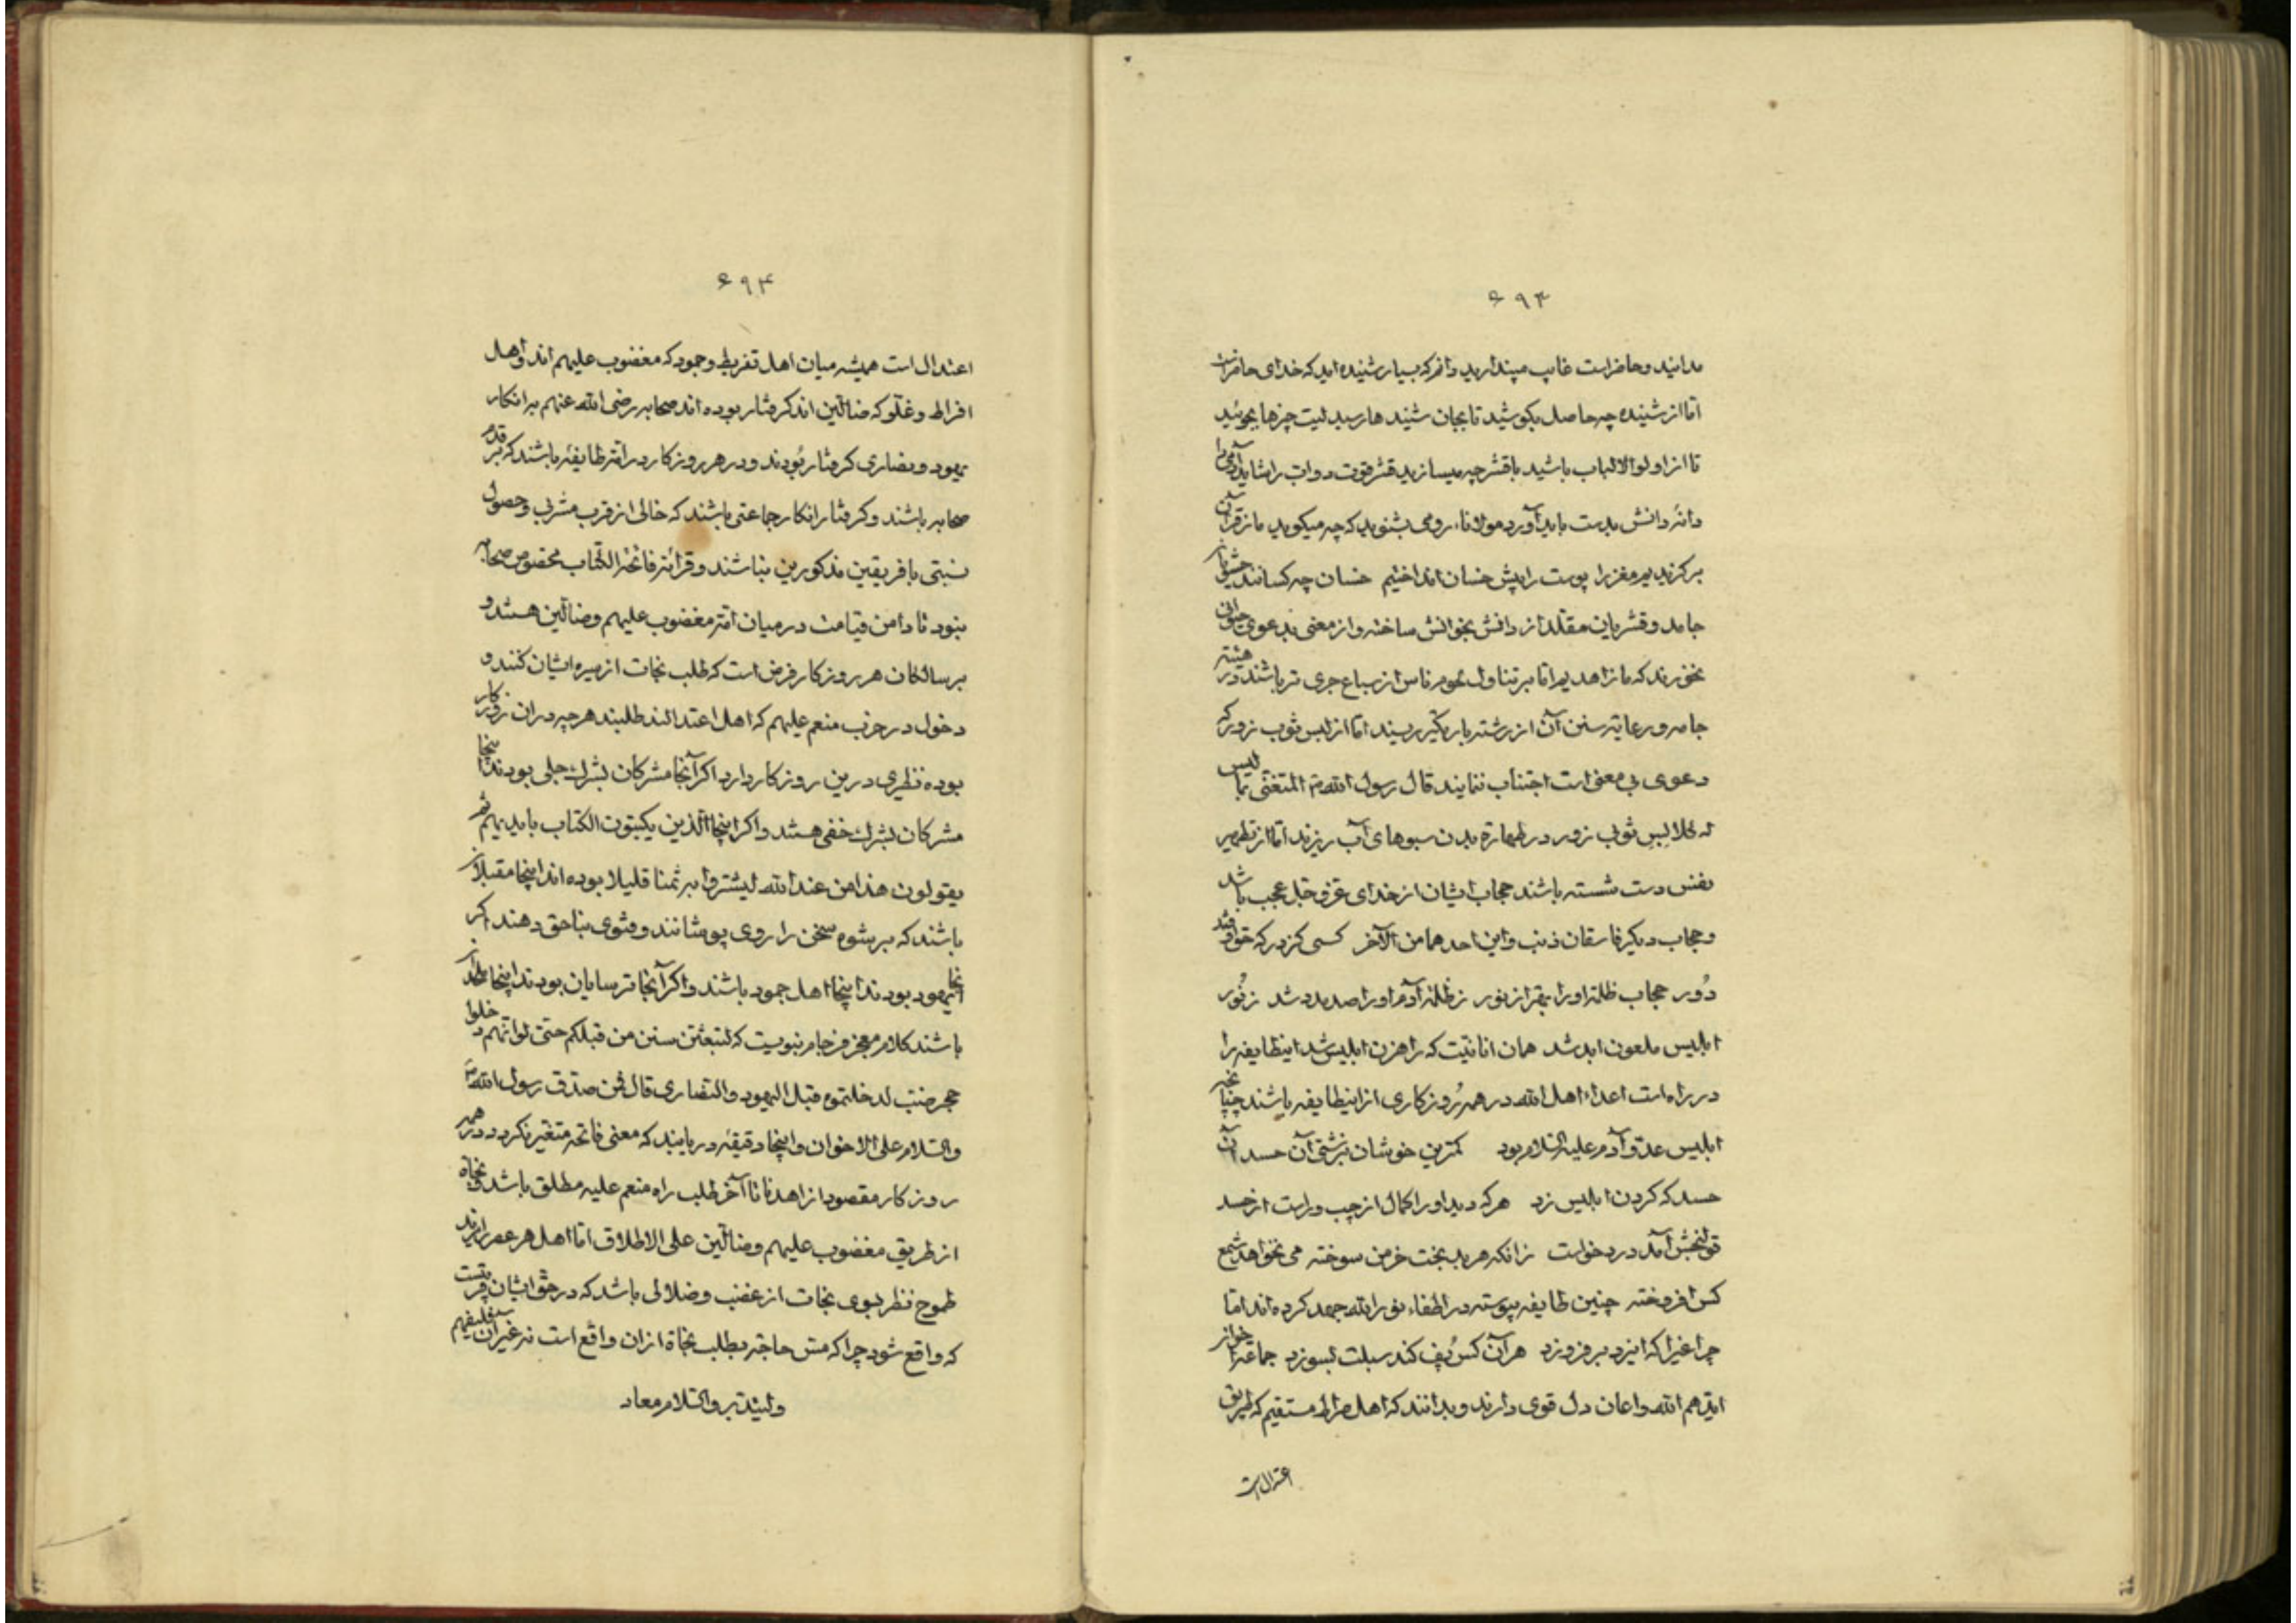 ۶۹۳
مدانید و حاضر است غایب مپندارید دانم که بسیار شنیده اید که خدای حاضر است
اما از شنیده چه حاصل بکوشید تا بجان شنید ها رسید لیت چیزها بجوئید
تا از اولو الالباب باشید با قشر چه میسازید قشر قوت دواب را شاید آدمی را
دانهٔ دانش بدست باید آورد مولاناء رومی بشنوید که چه میکوید ما ز قرآن
برکزیدیم مغز را پوست را پیش خسان انداختیم خسان چه کسانند
جامد و قشریان مقلد از دانش بخوانش ساخته و از معنی بدعوی
نخورند که ما زاهدیم اما بر تناول لحوم ناس از سباع جری تر باشند در
جامه و رعایة سنن آن از رشته باریکتر ریسند اما از لبس ثوب زور که
دعوی بی معنی است اجتناب ننمایند قال رسول الله صم المتغنی بما لیس
له کلابس ثوبی زور در طهارة بدن سبوهای آب ریزند اما از تطهیر
نفس دست شسته باشند حجاب ایشان از خدای عزّ و جلّ عجب باشد
و حجاب دیکر فاسقان ذنب و این احدهما من الآخر کسی کز در که حق اوفتد
دور حجاب ظلمة او را بهتر از نور ز ظلمة آدم او را صد مدد شد ز نور
ابلیس ملعون ابد شد همان انانیّت که راهزن ابلیس شد اینطایفه را
در راه است اعداء اهل الله در همه روزکاری از اینطایفه باشند چنانچه
ابلیس عدوّ آدم علیه السّلام بود کمترین خوشان بزشتی آن حسد آن
حسد که کردن ابلیس زد هر که دید او را کمال از چپ و راست از حسد
قولنجش آمد درد خواست زانکه هر بدبخت خرمن سوخته می نخواهد شمع
کس افروخته چنین طایفه پیوسته در اطفاء نور الله جهد کرده اند اما
چراغیرا که ایزد بر فروزد هر آن کس پف کند سبلت بسوزد جماعة اخوان
ایّدهم الله و اعان دل قوی دارند و بدانند که اهل صراط مستقیم که طریق
اعتدال است
۶۹۴
اعتدال است همیشه میان اهل تفریط و جمود که مغضوب علیهم اند و اهل
افراط و غلّو که ضالّین اند کرفتار بوده اند صحابه رضی الله عنهم بر انکار
یهود و نصاری کرفتار بودند و در هر روزکار در امّة طایفهٔ باشند که بر قدم
صحابه باشند و کرفتار انکار جماعتی باشند که خالی از قرب مشربی و حصول
نسبتی با فریقین مذکورین نباشند و قرائة فاتحة الکتاب مخصوص صحابه
نبود تا دامن قیامت در میان امّة مغضوب علیهم و ضالّین هستند و
بر سالکان هر روزکار فرض است که طلب نجات از سیره ایشان کنند و
دخول در حزب منعم علیهم که اهل اعتدالند طلبند هر چه در ان روزکار
بوده نظیری درین روزکار دارد اکر آنجا مشرکان بشرک جلی بودند اینجا
مشرکان بشرک خفی هستند و اکر اینجا الّذین یکتبون الکتاب بایدیهم ثم
یقولون هذا من عند الله لیشتروا به ثمنا قلیلا بوده اند اینجا مقبلان
باشند که بر شوم سخن را روی پوشانند و فتوی بناحق دهند اکر
آنجا یهود بودند اینجا اهل جمود باشند و اکر آنجا ترسایان بودند اینجا
باشند کلام معجز فرجام نبویست که لتتبعنّ سنن من قبلکم حتّی لو انّهم دخلوا
حجر ضبّ لدخلتموه قیل الیهود و النّصاری قال فمن صدق رسول الله صم
و السّلام علی الاخوان و اینجا دقیقهٔ دریابند که معنی فاتحه متغیّر نکردد در همه
روزکار مقصود از اهدنا تا آخر طلب راه منعم علیه مطلق باشد و نجاة
از طریق مغضوب علیهم و ضالّین علی الاطلاق امّا اهل هر عصر را
طموح نظر بسوی نجات از غضب و ضلالی باشد که در حقّ ایشان
که واقع شود چرا که مسّ حاجة بطلب نجاة از ان واقع است نه غیر آن فلیفهم
و لیتدبّر و السّلام معاد